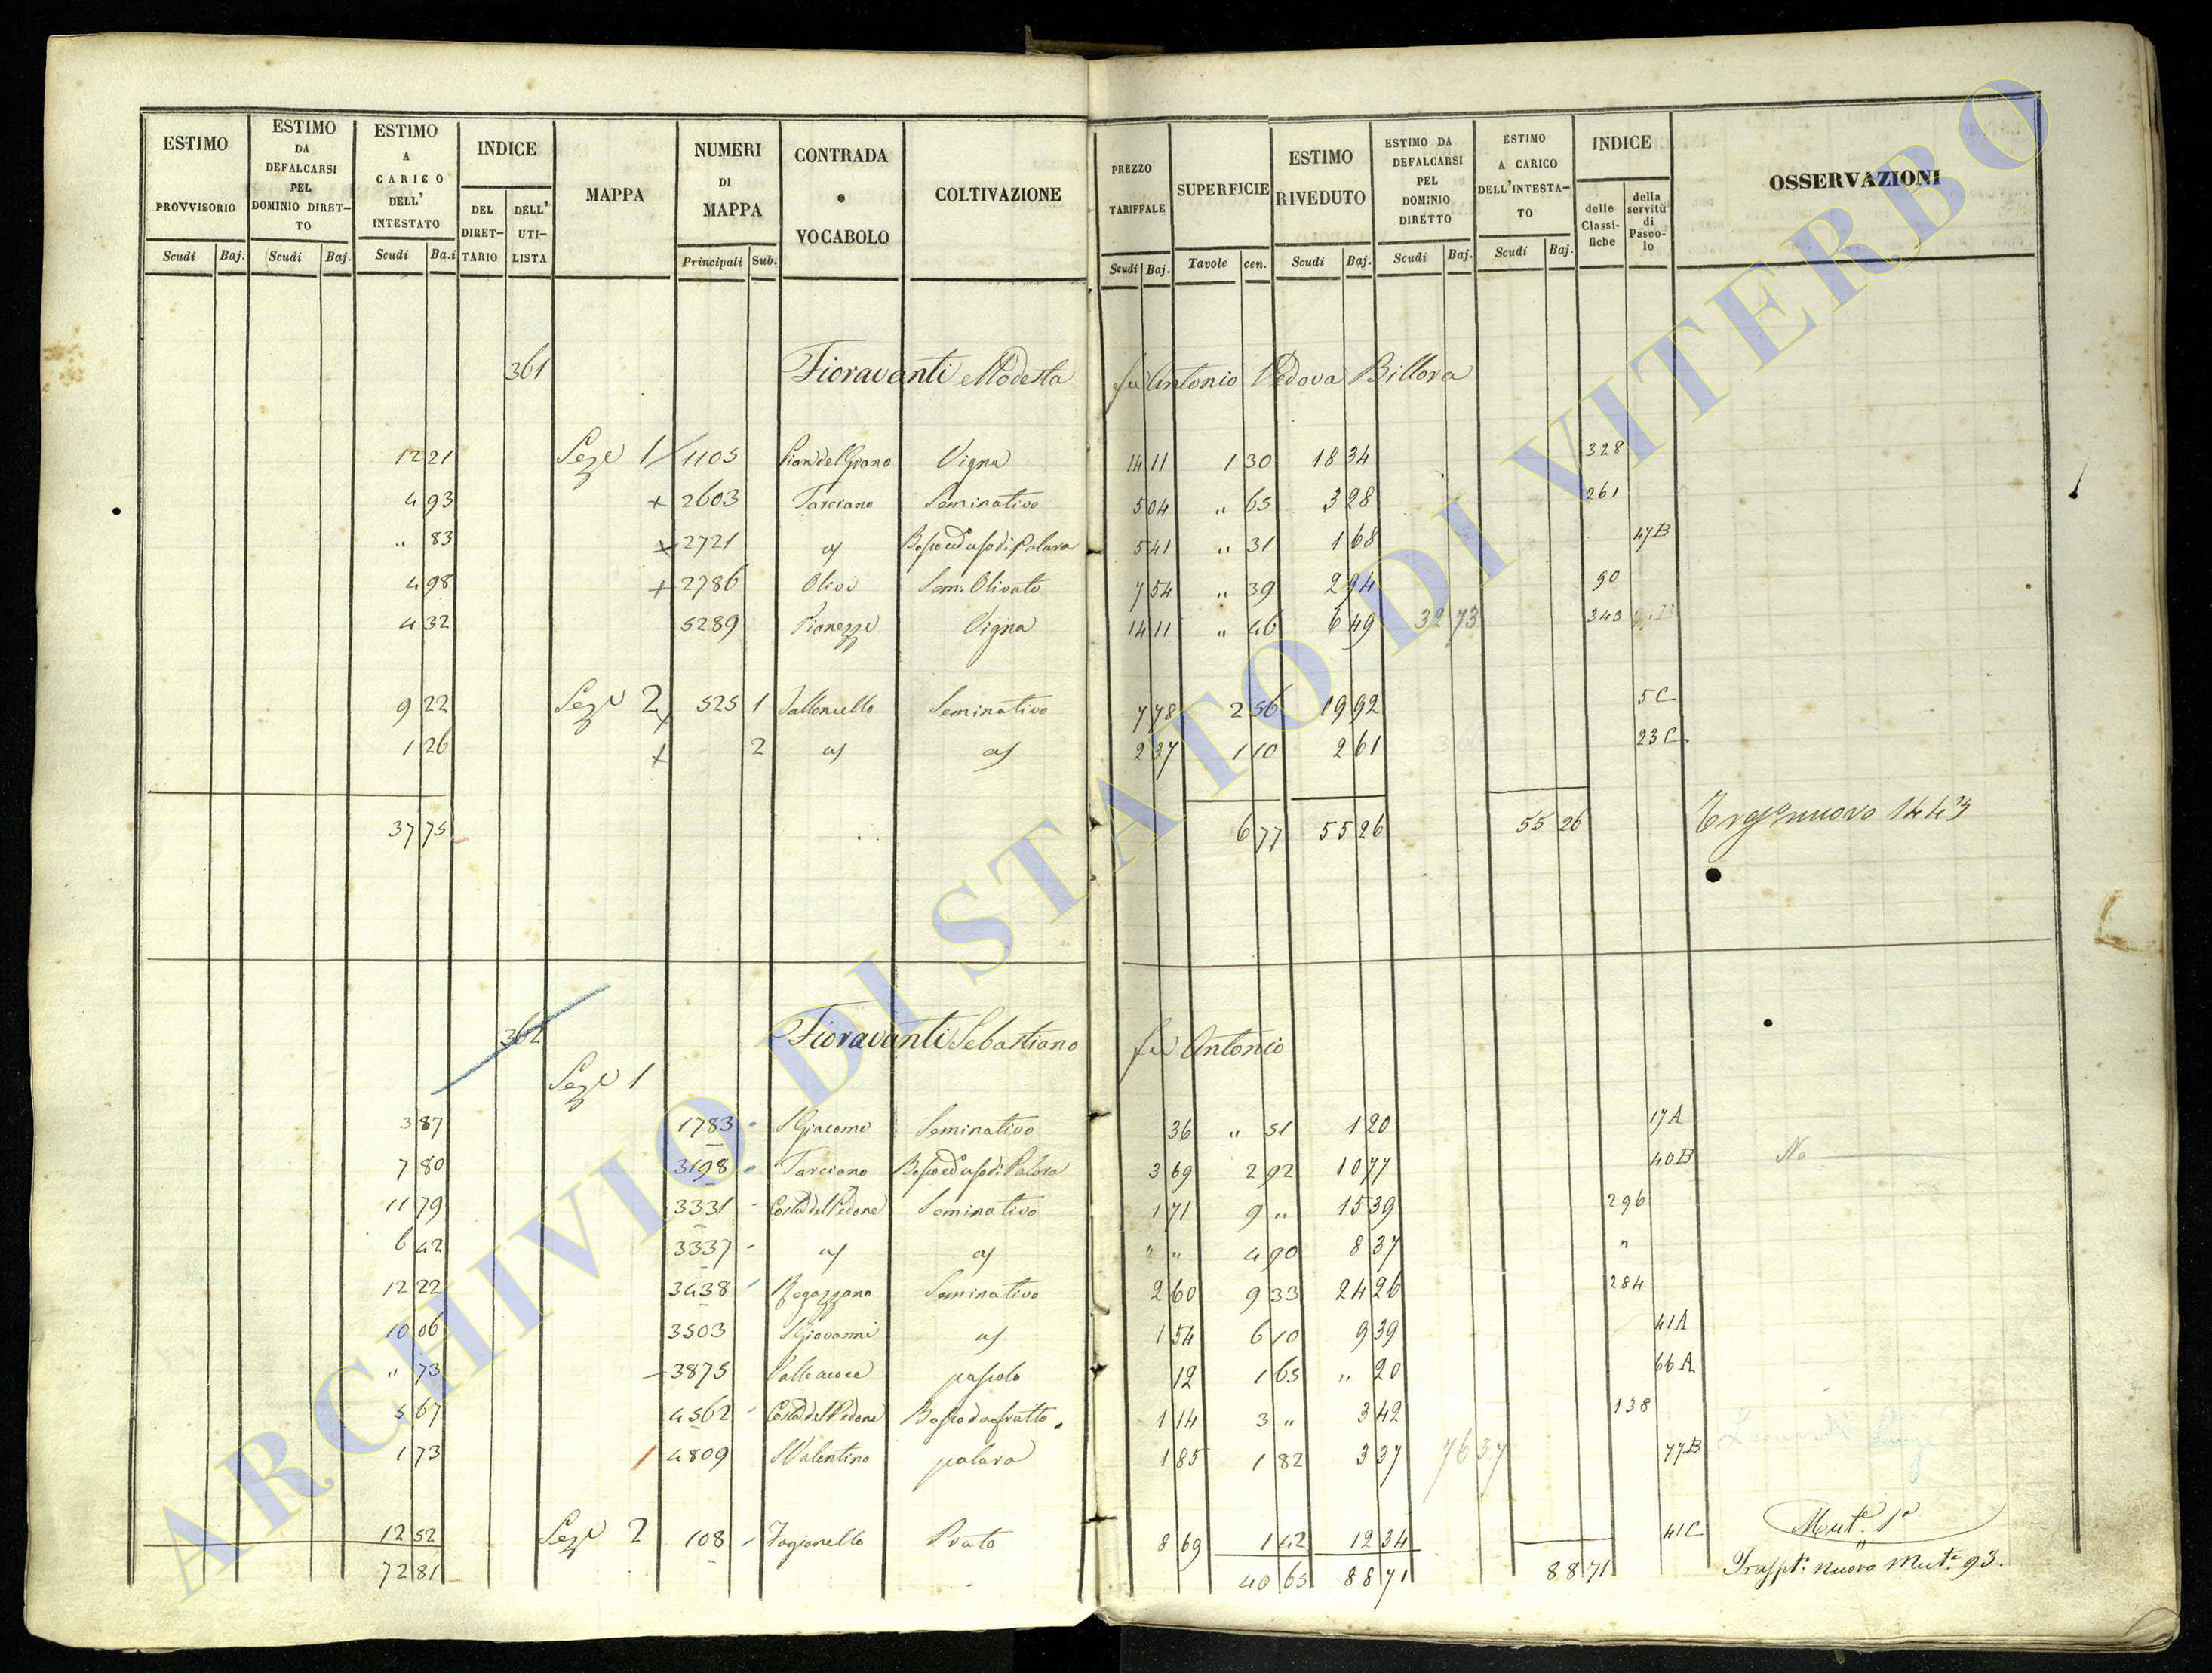 ESTIMO PROVVISORIO Scudi Baj.
ESTIMO DA DEFALCARSI PEL DOMINIO DIRET-TO Scudi Baj.
ESTIMO A CARICO DELL' INTESTATO Scudi Ba.i
INDICE DEL DIRET-TARIO DELL' UTI-LISTA
MAPPA
NUMERI DI MAPPA Principali Sub.
CONTRADA o VOCABOLO
COLTIVAZIONE
PREZZO TARIFFALE Scudi Baj.
SUPERFICIE Tavole cen.
ESTIMO RIVEDUTO Scudi Baj.
ESTIMO DA DEFALCARSI PEL DOMINIO DIRETTO Scudi Baj.
ESTIMO A CARICO DELL'INTESTA-TO Scudi Baj.
INDICE delle Classi-fiche della servitù di Pasco-lo
OSSERVAZIONI
361 Fioravanti Modesta fu Antonio Vedova Billova
12 21 Sez.e 1 1105 Pian del Grano Vigna 14 11 1 30 18 34 328
4 93 + 2603 Tarciano Seminativo 5 04 " 65 3 28 261
" 83 + 2721 a/ Bosco ced.o uso di Palara 5 41 " 31 1 68 47B
4 98 + 2786 Olivi Sem. Olivato 7 54 " 39 2 94 90
4 32 5289 Pianezze Vigna 14 11 " 46 6 49 32 73 343
9 22 Sez.e 2 525 1 Valloncello Seminativo 7 78 2 56 19 92 5C
1 26 + 2 a/ a/ 2 37 1 10 2 61 23C
37 75 6 77 55 26 55 26 nuovo 1443
362 Fioravanti Sebastiano fu Antonio
Sez.e 1
3 87 1783 S Giacomo Seminativo 36 " 51 1 20 17A
7 80 3198 Tarciano Bosco ced.o uso di Palara 3 69 2 92 10 77 40B No
11 79 3331 Costa del Pedone Seminativo 1 71 9 " 15 39 296
6 42 3337 a/ a/ " " 4 90 8 37 "
12 22 3438 Regazzano Seminativo 2 60 9 33 24 26 284
10 06 3503 S Giovanni a/ 1 54 6 10 9 39 41A
" 73 3875 Valleacoce pascolo 12 1 65 " 20 66A
5 67 4562 Costa del Pedone Bosco da frutto 1 14 3 " 3 42 138
1 73 4809 S Valentino palara 1 85 1 82 3 37 76 37 77B
12 52 Sez.e 2 108 Fogianello Prato 8 69 1 42 12 34 41C Mut.e 1a
72 81 40 65 88 71 88 71 Traspt. nuovo Mut.e 93.
ARCHIVIO DI STATO DI VITERBO